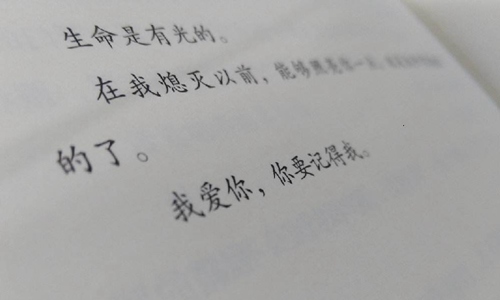 生命是有光的。
在我熄灭以前，能够照亮你一点，
的了。
我爱你，你要记得我。